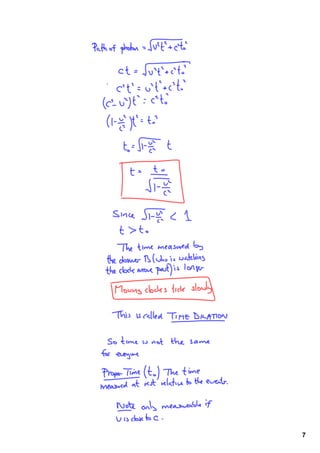 Path of photon = √u²t² + c²t₀²
ct = √u²t² + c²t₀²
c²t² = u²t² + c²t₀²
(c² - u²)t² = c²t₀²
(1 - u²/c²)t² = t₀²
t₀ = √1 - u²/c² t
t = t₀ / √1 - u²/c²
Since √1 - u²/c² < 1
t > t₀
The time measured by
the observer B (who is watching
the clock move past) is longer
Moving clocks tick slowly
This is called TIME DILATION
So time is not the same
for everyone
Proper Time (t₀) The time
measured at rest relative to the events.
Note only measurable if
u is close to c.
7